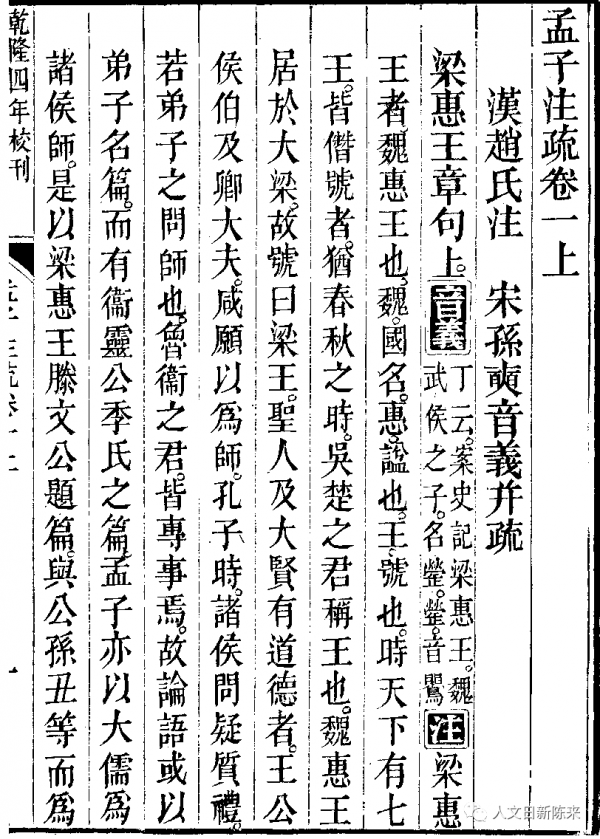 孟子注疏卷一上
漢趙氏注　宋孫奭音義并疏
梁惠王章句上。音義丁云。案史記梁惠王。魏武侯之子。名罃。罃。音鸎注梁惠
王者。魏惠王也。魏。國名。惠。諡也。王。號也。時天下有七
王。皆僭號者。猶春秋之時。吳楚之君稱王也。魏惠王
居於大梁。故號曰梁王。聖人及大賢有道德者。王公
侯伯及卿大夫。咸願以為師。孔子時。諸侯問疑質禮。
若弟子之問師也。魯衞之君。皆專事焉。故論語或以
弟子名篇。而有衞靈公季氏之篇。孟子亦以大儒為
諸侯師。是以梁惠王滕文公題篇。與公孫丑等而為
乾隆四年校刊
人文日新陈来